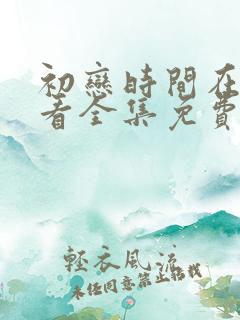 初戀時間在
看全集免費
輕衣風流
未经同意禁止转载